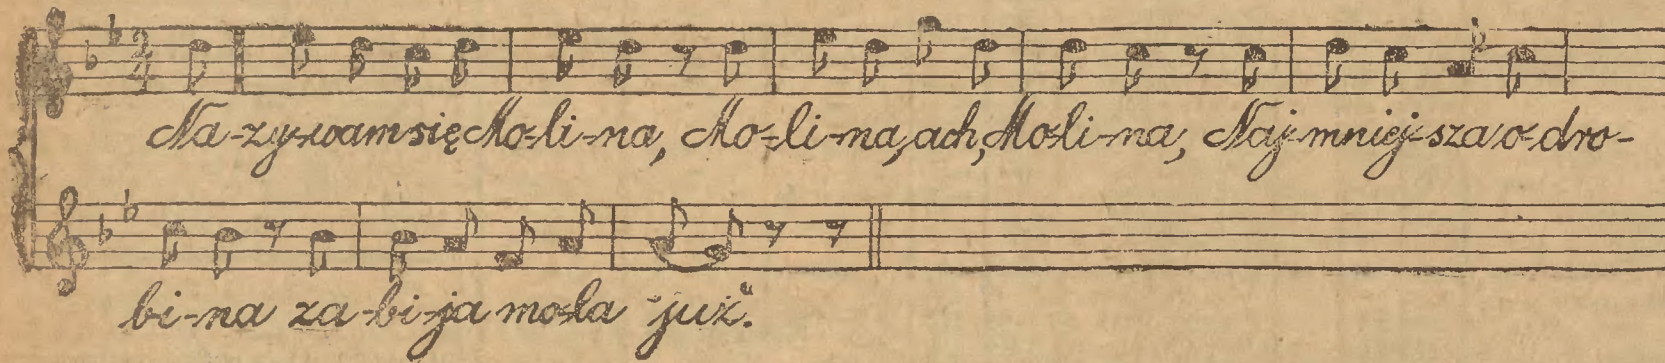 Na-zy-wam się Mo-li-na, Mo-li-na, ach, Mo-li-na, Naj-mniej-sza o-dro-
bi-na za-bi-ja mo-la "już".